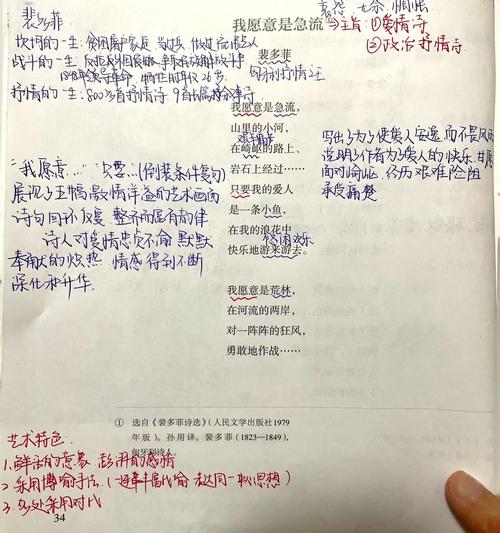 裴多菲
坎坷的一生：贫困屠户家庭
战斗的一生：
抒情的一生：800多首抒情诗 9首长篇叙事诗
匈牙利抒情之王
我愿意是急流
⇒主旨：①爱情诗
②政治抒情诗
裴多菲
我愿意是急流，
山里的小河，
艰难曲折
在崎岖的路上、
岩石上经过……
只要我的爱人
是一条小鱼，
在我的浪花中
悠闲欢乐
快乐地游来游去。
我愿意是荒林，
在河流的两岸，
对一阵阵的狂风，
勇敢地作战……
“我愿意……只要…”(倒装条件复句)
展现了五幅激情洋溢的艺术画面
诗句回环反复，整齐而富有韵律
诗人对爱情忠贞不渝 默默
奉献的炽热 情感得到不断
深化和升华.
写出了为了使爱人安逸，而不畏风
说明了作者为了爱人的快乐，甘愿
面对愉苦，经历艰难险阻
承受痛楚
① 选自《裴多菲诗选》（人民文学出版社1979
年版）。孙用译。裴多菲（1823—1849），
匈牙利诗人。
艺术特色
1.鲜活的意象，澎湃的感情
2.采用博喻手法（一连串排比喻 表达同一种思想）
3.多处采用对比
34